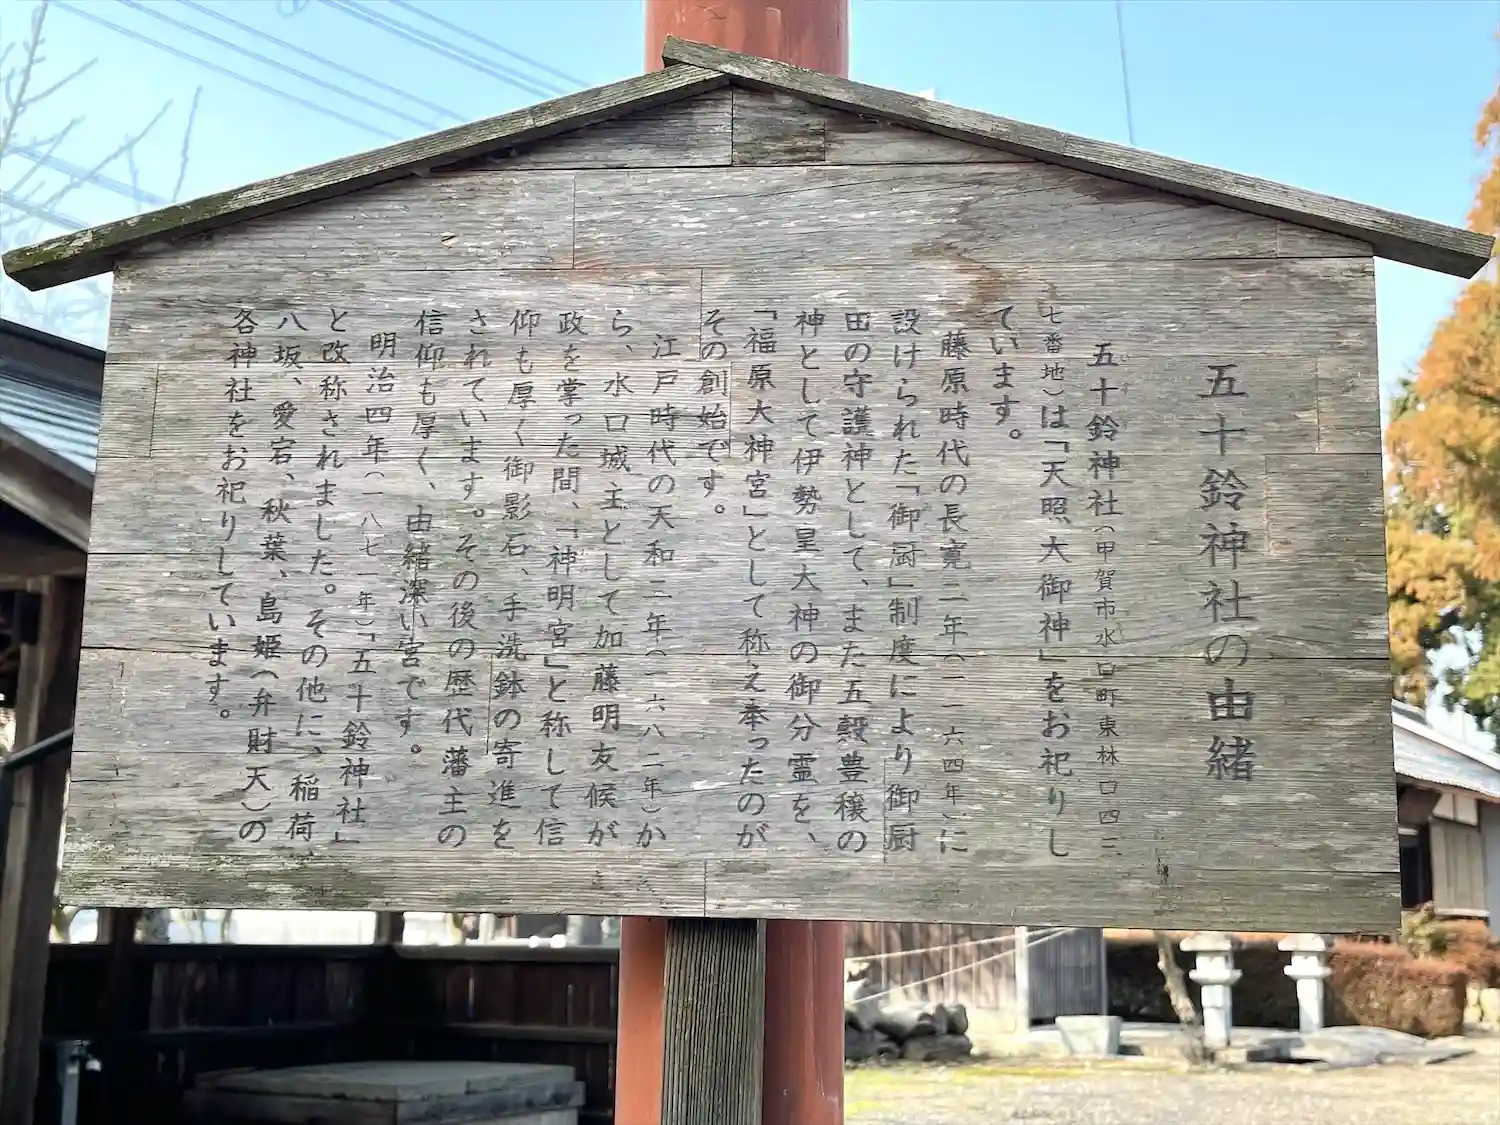 五十鈴神社の由緒
五十鈴神社(甲賀市水口町東林口四二
七番地)は「天照大御神」をお祀りし
ています。
藤原時代の長寛二年(一一六四年)に
設けられた「御厨」制度により御厨
田の守護神として、また五穀豊穣の
神として伊勢皇大神の御分霊を、
「福原大神宮」として称え奉ったのが
その創始です。
江戸時代の天和二年(一六八二年)か
ら、水口城主として加藤明友候が
政を掌った間、「神明宮」と称して信
仰も厚く御影石、手洗鉢の寄進を
されています。その後の歴代藩主の
信仰も厚く、由緒深い宮です。
明治四年(一八七一年)「五十鈴神社」
と改称されました。その他に、稲荷、
八坂、愛宕、秋葉、島姫(弁財天)の
各神社をお祀りしています。